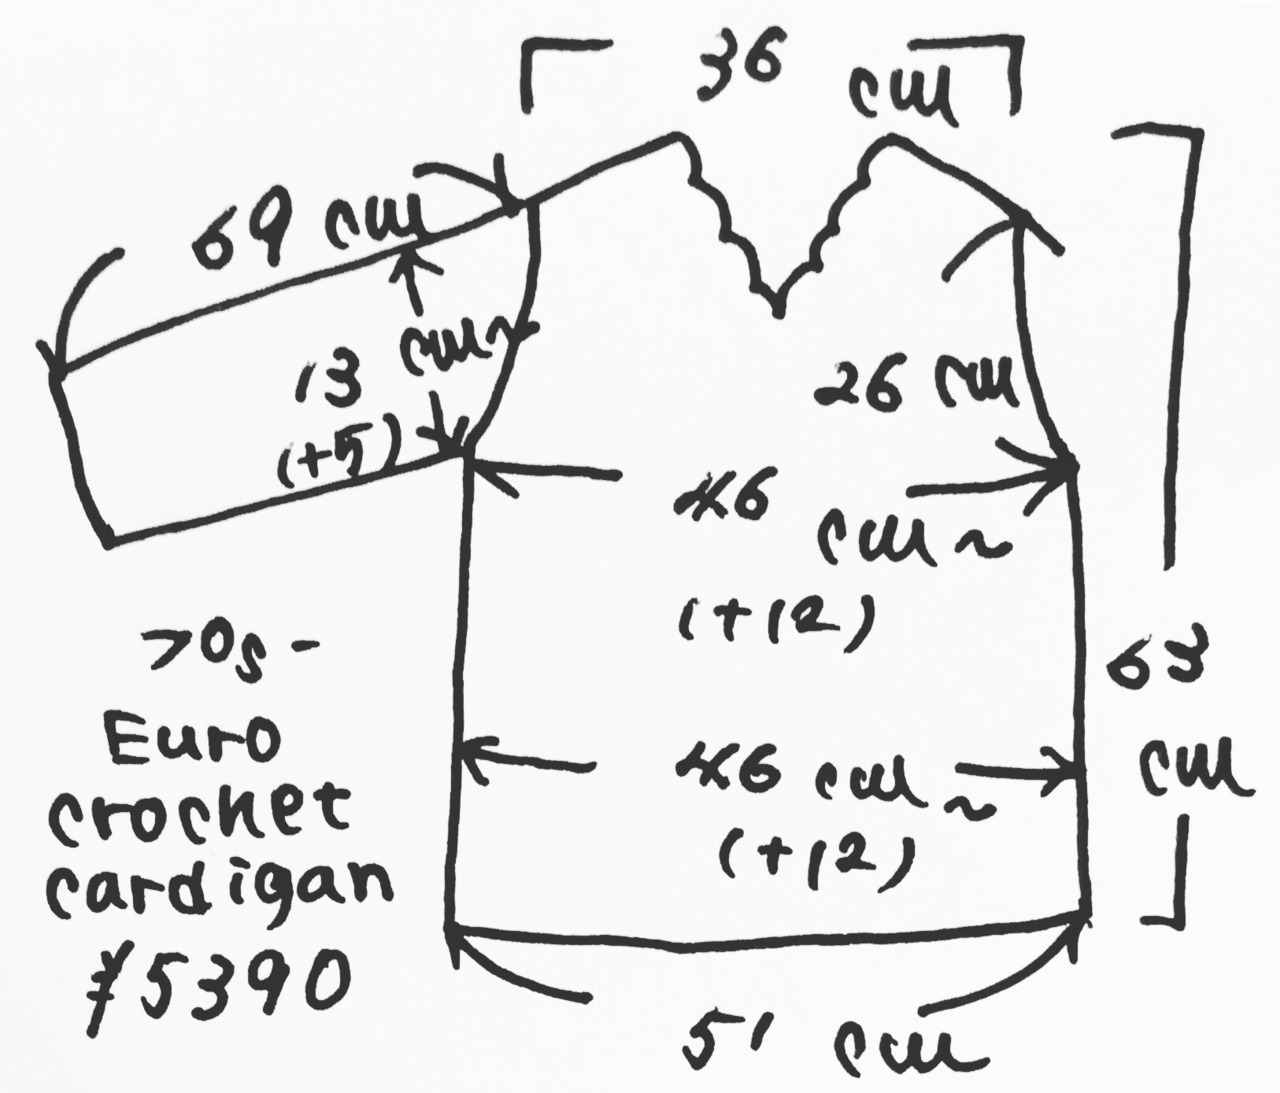 36 cm
69 cm
13 cm~
(+5)
26 cm
46 cm~
(+12)
63 cm
46 cm~
(+12)
51 cm
70s-
Euro
crochet
cardigan
¥5390